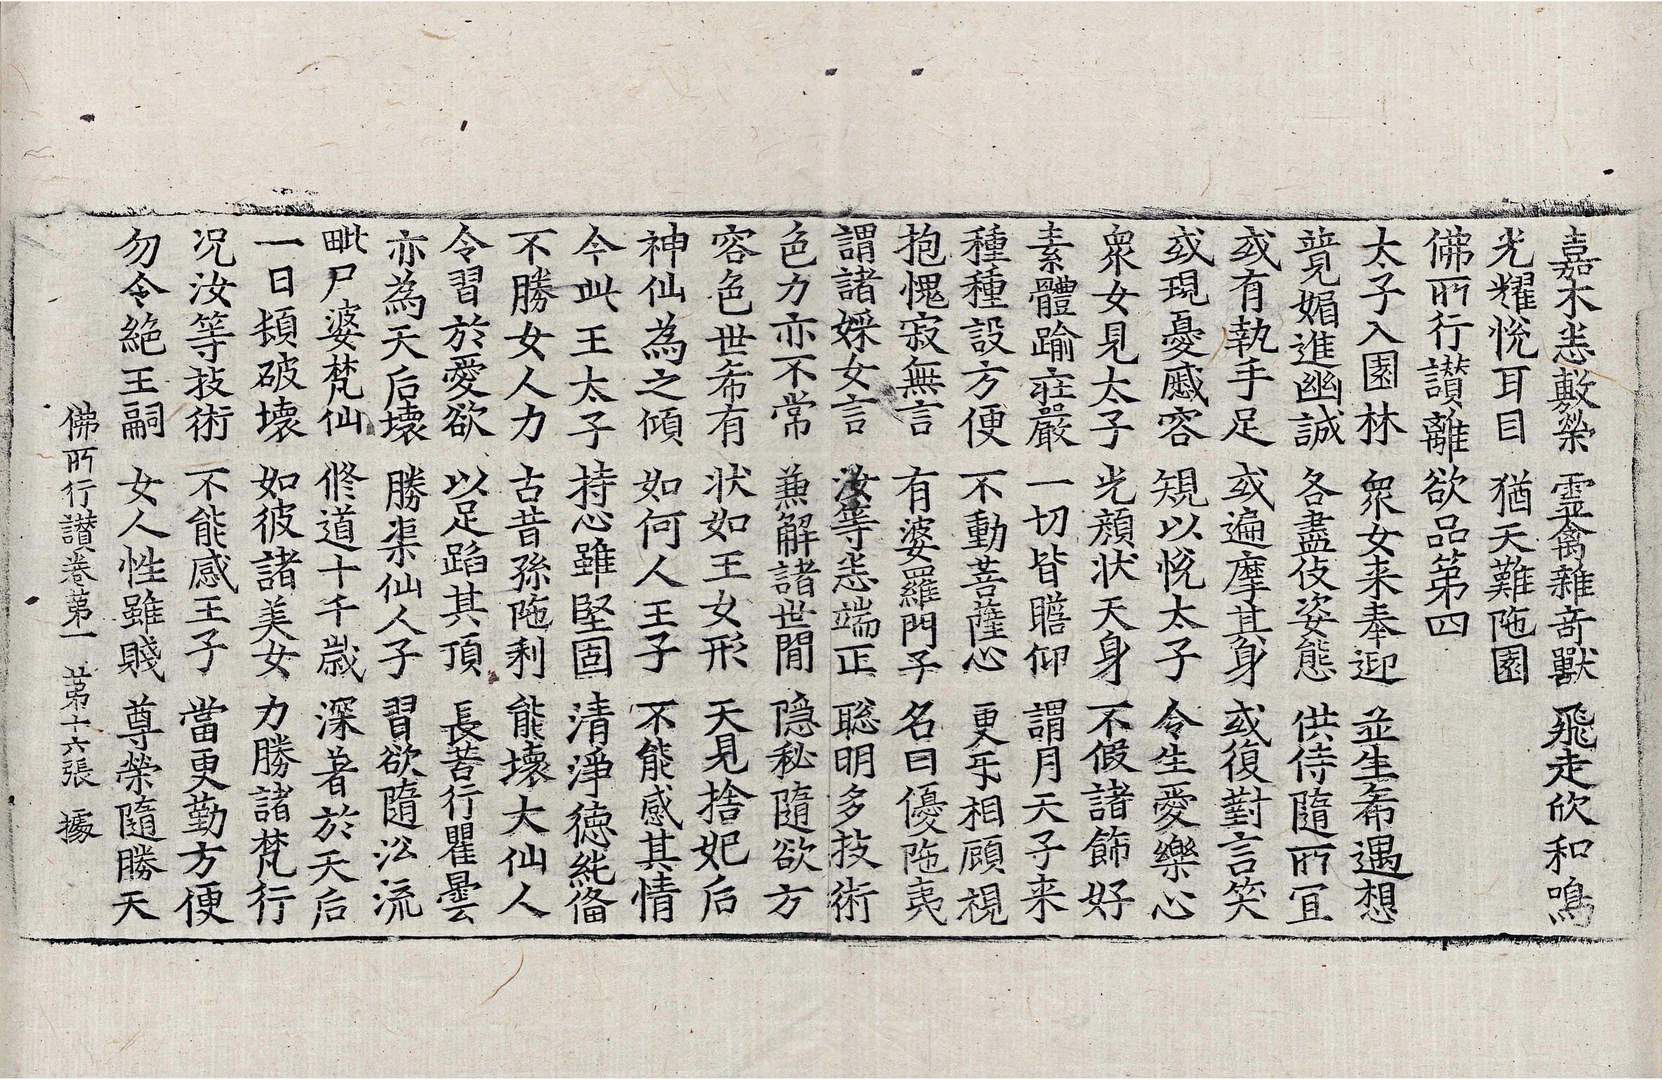 嘉木恙敷榮　靈禽雜奇獸　飛走欣和鳴
光耀悅耳目　猶天難陁園
佛所行讃離欲品第四
太子入園林　衆女来奉迎　並生希遇想
竟媚進幽誠　各盡伎姿態　供侍隨所冝
或有執手足　或遍摩其身　或復對言笑
或現憂慼容　規以悅太子　令生愛樂心
衆女見太子　光顏狀天身　不假諸飾好
素體踰莊嚴　一切皆瞻仰　謂月天子来
種種設方便　不動菩薩心　更乎相顧視
抱愧寂無言　有婆羅門子　名曰優陁夷
謂諸婇女言　汝等恙端正　聡明多技術
色力亦不常　兼解諸世閒　隱秘隨欲方
容色世希有　狀如王女形　天見捨妃后
神仙為之傾　如何人王子　不能感其情
今此王太子　持心雖堅固　清淨德純俻
不勝女人力　古昔孫陁利　能壞大仙人
令習於愛欲　以足蹈其頂　長苦行瞿曇
亦為天后壞　勝渠仙人子　習欲隨㳂流
毗尸婆梵仙　修道十千嵗　深著於天后
一日頓破壞　如彼諸美女　力勝諸梵行
况汝等技術　不能感王子　當更勤方便
勿令絕王嗣　女人性雖賤　尊榮隨勝天
佛所行讃卷苐一　苐十六張　據